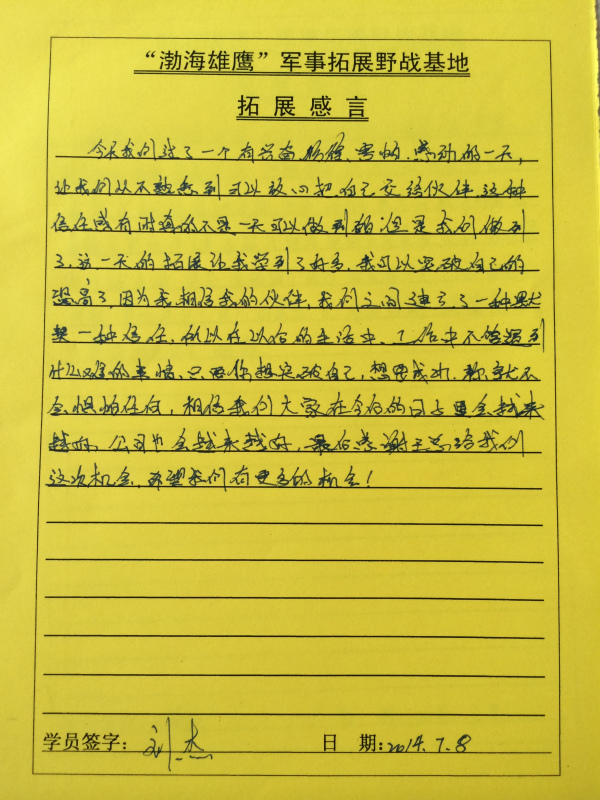 “渤海雄鹰”军事拓展野战基地
拓展感言
今天我们过了一个有兴奋、惊险、害怕、感动的一天,
让我们从不熟悉到可以放心把自己交给伙伴这种
信任感有时真的不是一天可以做到的但是我们做到
了.这一天的拓展让我学到了好多,我可以突破自己的
恐高了,因为我相信我的伙伴,我们之间建立了一种默
契一种信任.所以在以后的生活中、工作中不管遇到
什么难的事情.只要你想突破自己,想要成功.就不
会惧怕任何,相信我们大家在今后的日子里会越来
越好,公司也会越来越好,最后感谢王总给我们
这次机会,希望我们有更多的机会!
学员签字:刘杰
日 期:2014.7.8